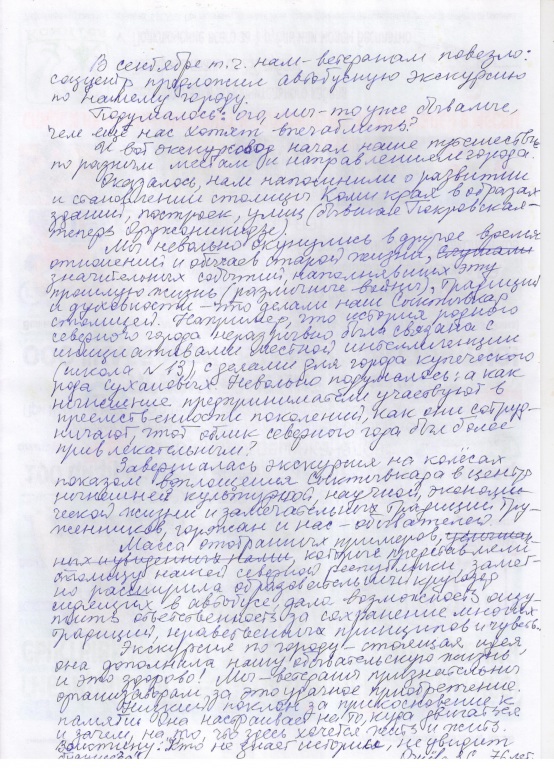 В сентябре т.г. нам-ветеранам повезло:
соццентр предложил автобусную экскурсию
по нашему городу.
Подумалось: ого, мы-то уже бывалые,
чем ещё нас хотят впечатлить?
И вот экскурсовод начал наше путешествие
по разным местам и направлениям города.
Оказалось, нам напомнили о развитии
и становлении столицы Коми края в образах
зданий, построек, улиц (бывшая Покровская-
теперь Орджоникидзе).
Мы невольно окунулись в другое время
отношений и обычаев старой жизни,
значительных событий, наполнявших эту
прошлую жизнь (различные войны), традиций
и духовности - что сделали наш Сыктывкар
столицей. Например, что история родного
северного города неразрывно была связана с
инициативами местной интеллигенции
(школа №13), с делами для города купеческого
рода Сухановых. Невольно подумалось: а как
нынешние предприниматели участвуют в
преемственности поколений, как они сотруд-
ничают, чтоб облик северного города был более
привлекательным?
Завершилась экскурсия на колёсах
показом воплощения Сыктывкара в центр
нынешней культурной, научной, экономи-
ческой жизни и замечательных традиций тру-
жеников, горожан и нас - обывателей.
Масса отобранных примеров,
ных и увиденных нами, которые представляли
столицу нашей северной республики, замет-
но расширила образовательный кругозор
сидящих в автобусе, дала возможность ощу-
тить ответственность за сохранение многих
традиций, нравственных принципов и чувств.
Экскурсия по городу - стоящая идея,
она дополнила нашу обывательскую жизнь,
и это здорово! Мы-ветераны признательны
организаторам за это удачное приобретение.
Низкий поклон за прикосновение к
памяти. Она настраивает не то, куда двигаться
и зачем, на то, что здесь хочется жить и жить.
Кто не знает истории, не увидит
76 лет